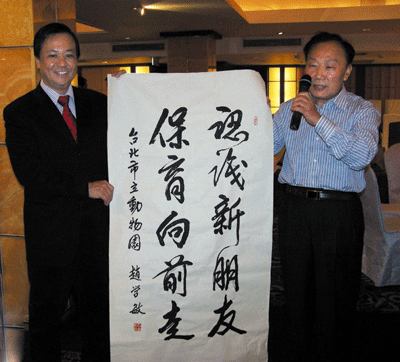 認識新朋友
保育向前走
台北市立動物園 趙学敏